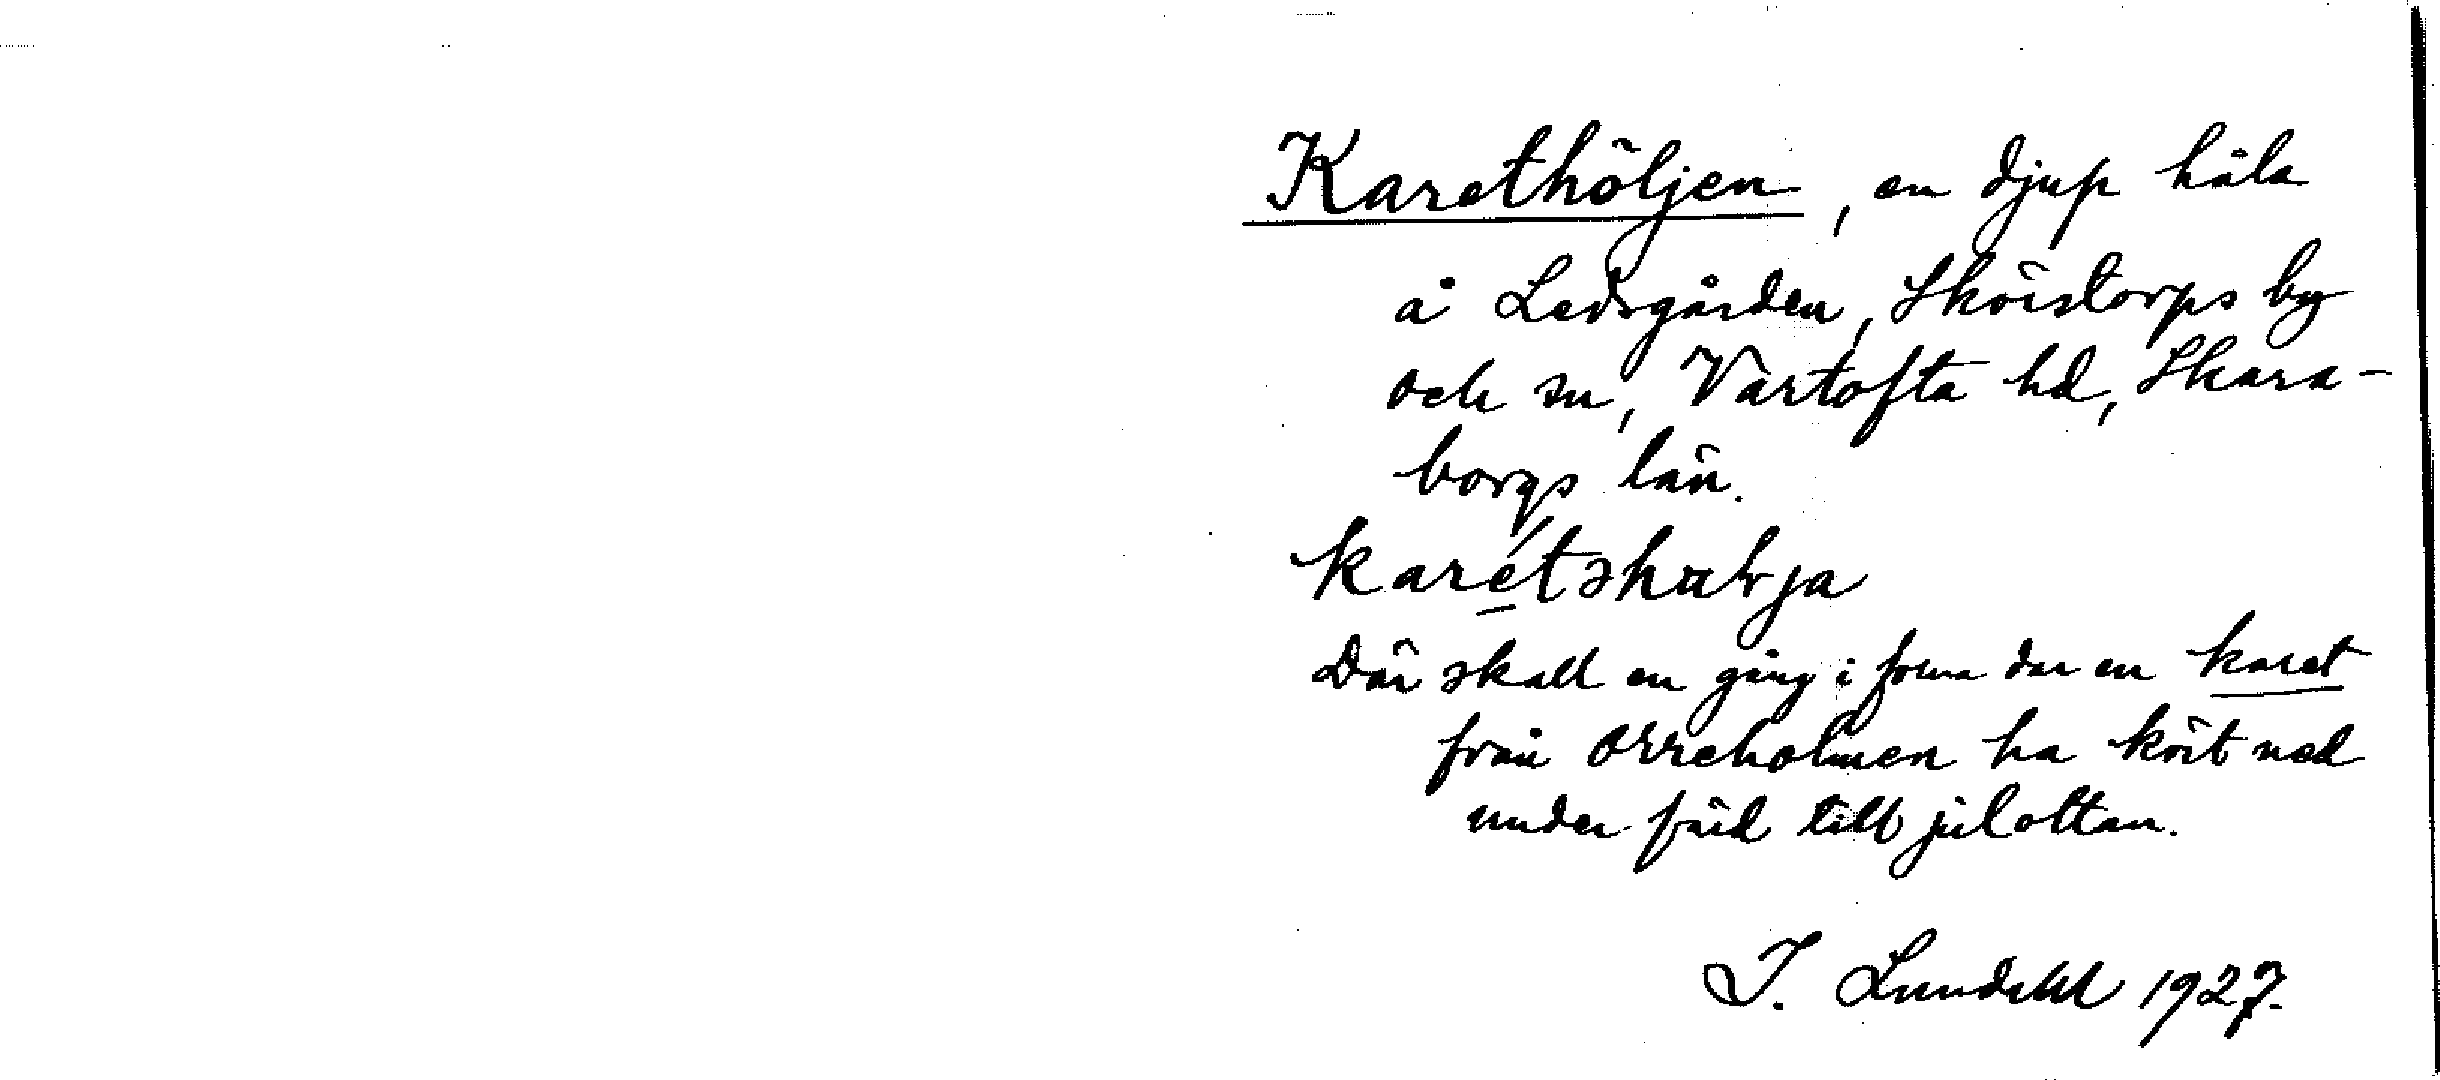 Karethöljen, en djup håla
å Ledsgården, Skörstorps by
och sn, Vartofta hd, Skara-
borgs län.
karétshølja
Där skall en gång i forna dar en karet
från Orreholmen ha kört ned
under färd till julottan.
I. Lundahl 1927.